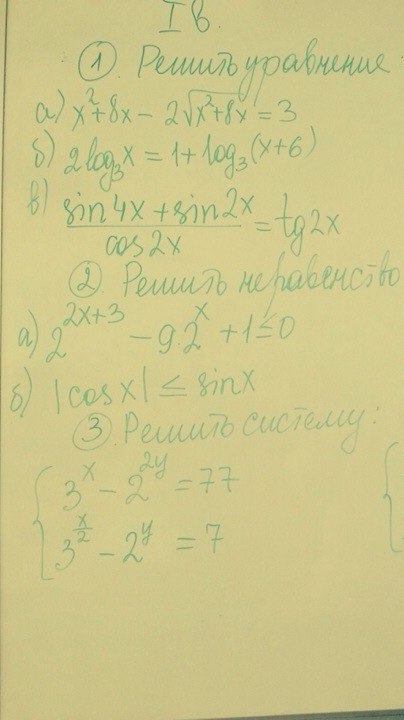 I в.
① Решить уравнение
а) x²+8x − 2√(x²+8x) = 3
б) 2log₃x = 1+log₃(x+6)
в) (sin4x + sin2x)/cos2x = tg2x
② Решить неравенство
а) 2^(2x+3) − 9·2^x + 1 ≤ 0
б) |cosx| ≤ sinx
③ Решить систему:
{ 3^x − 2^(2y) = 77
3^(x/2) − 2^y = 7